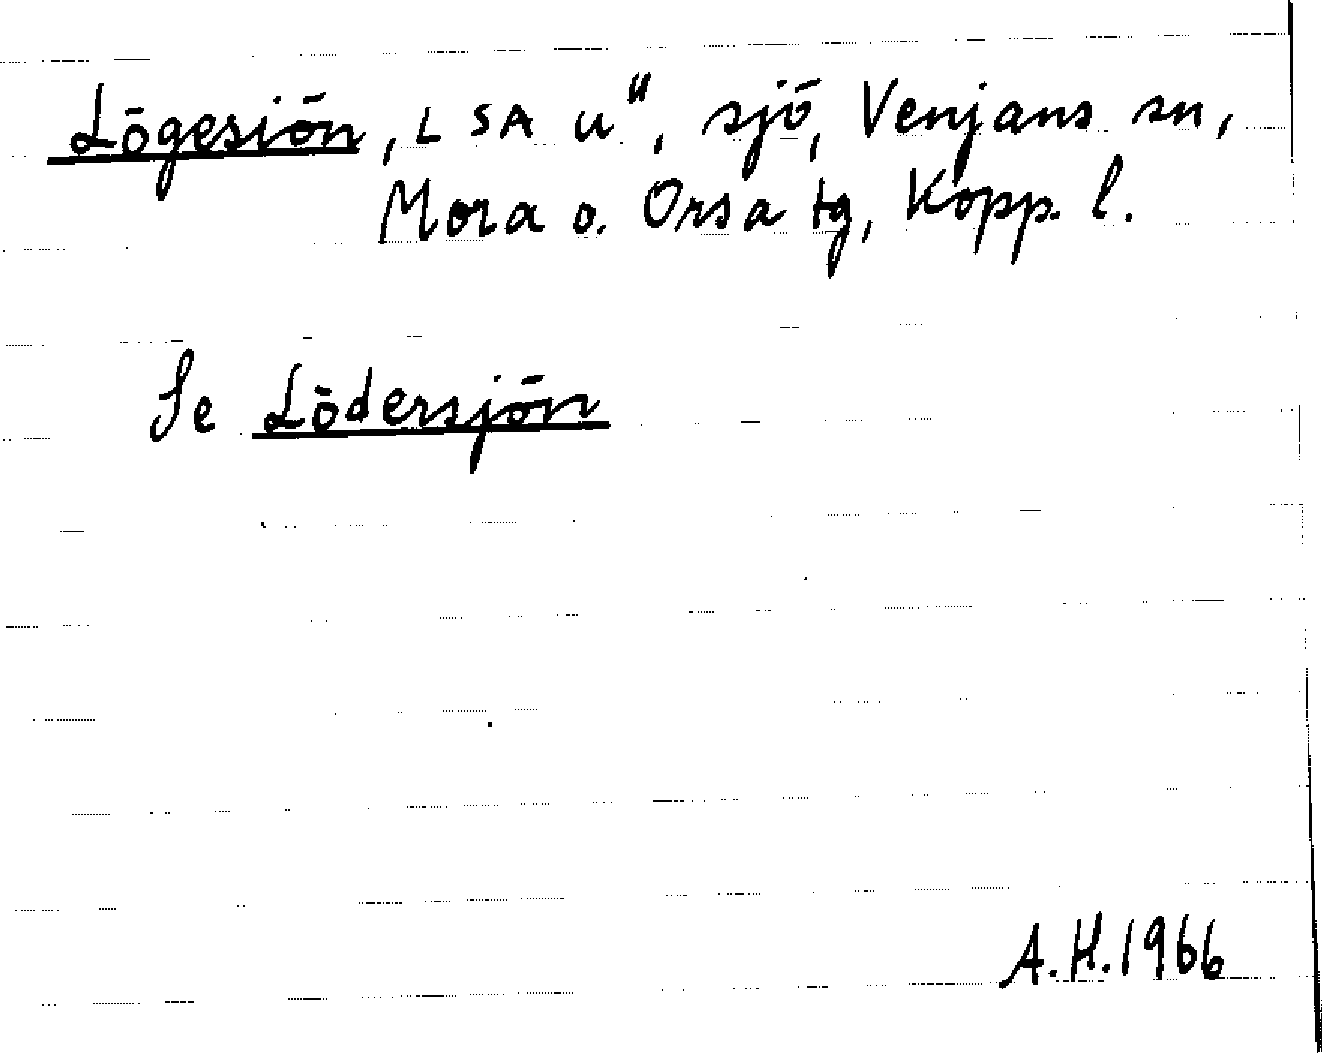 Lögesiön, L SA u", sjö, Venjans sn,
Mora o. Orsa tg, Kopp. l.
Se Lödersjön
A.H.1966